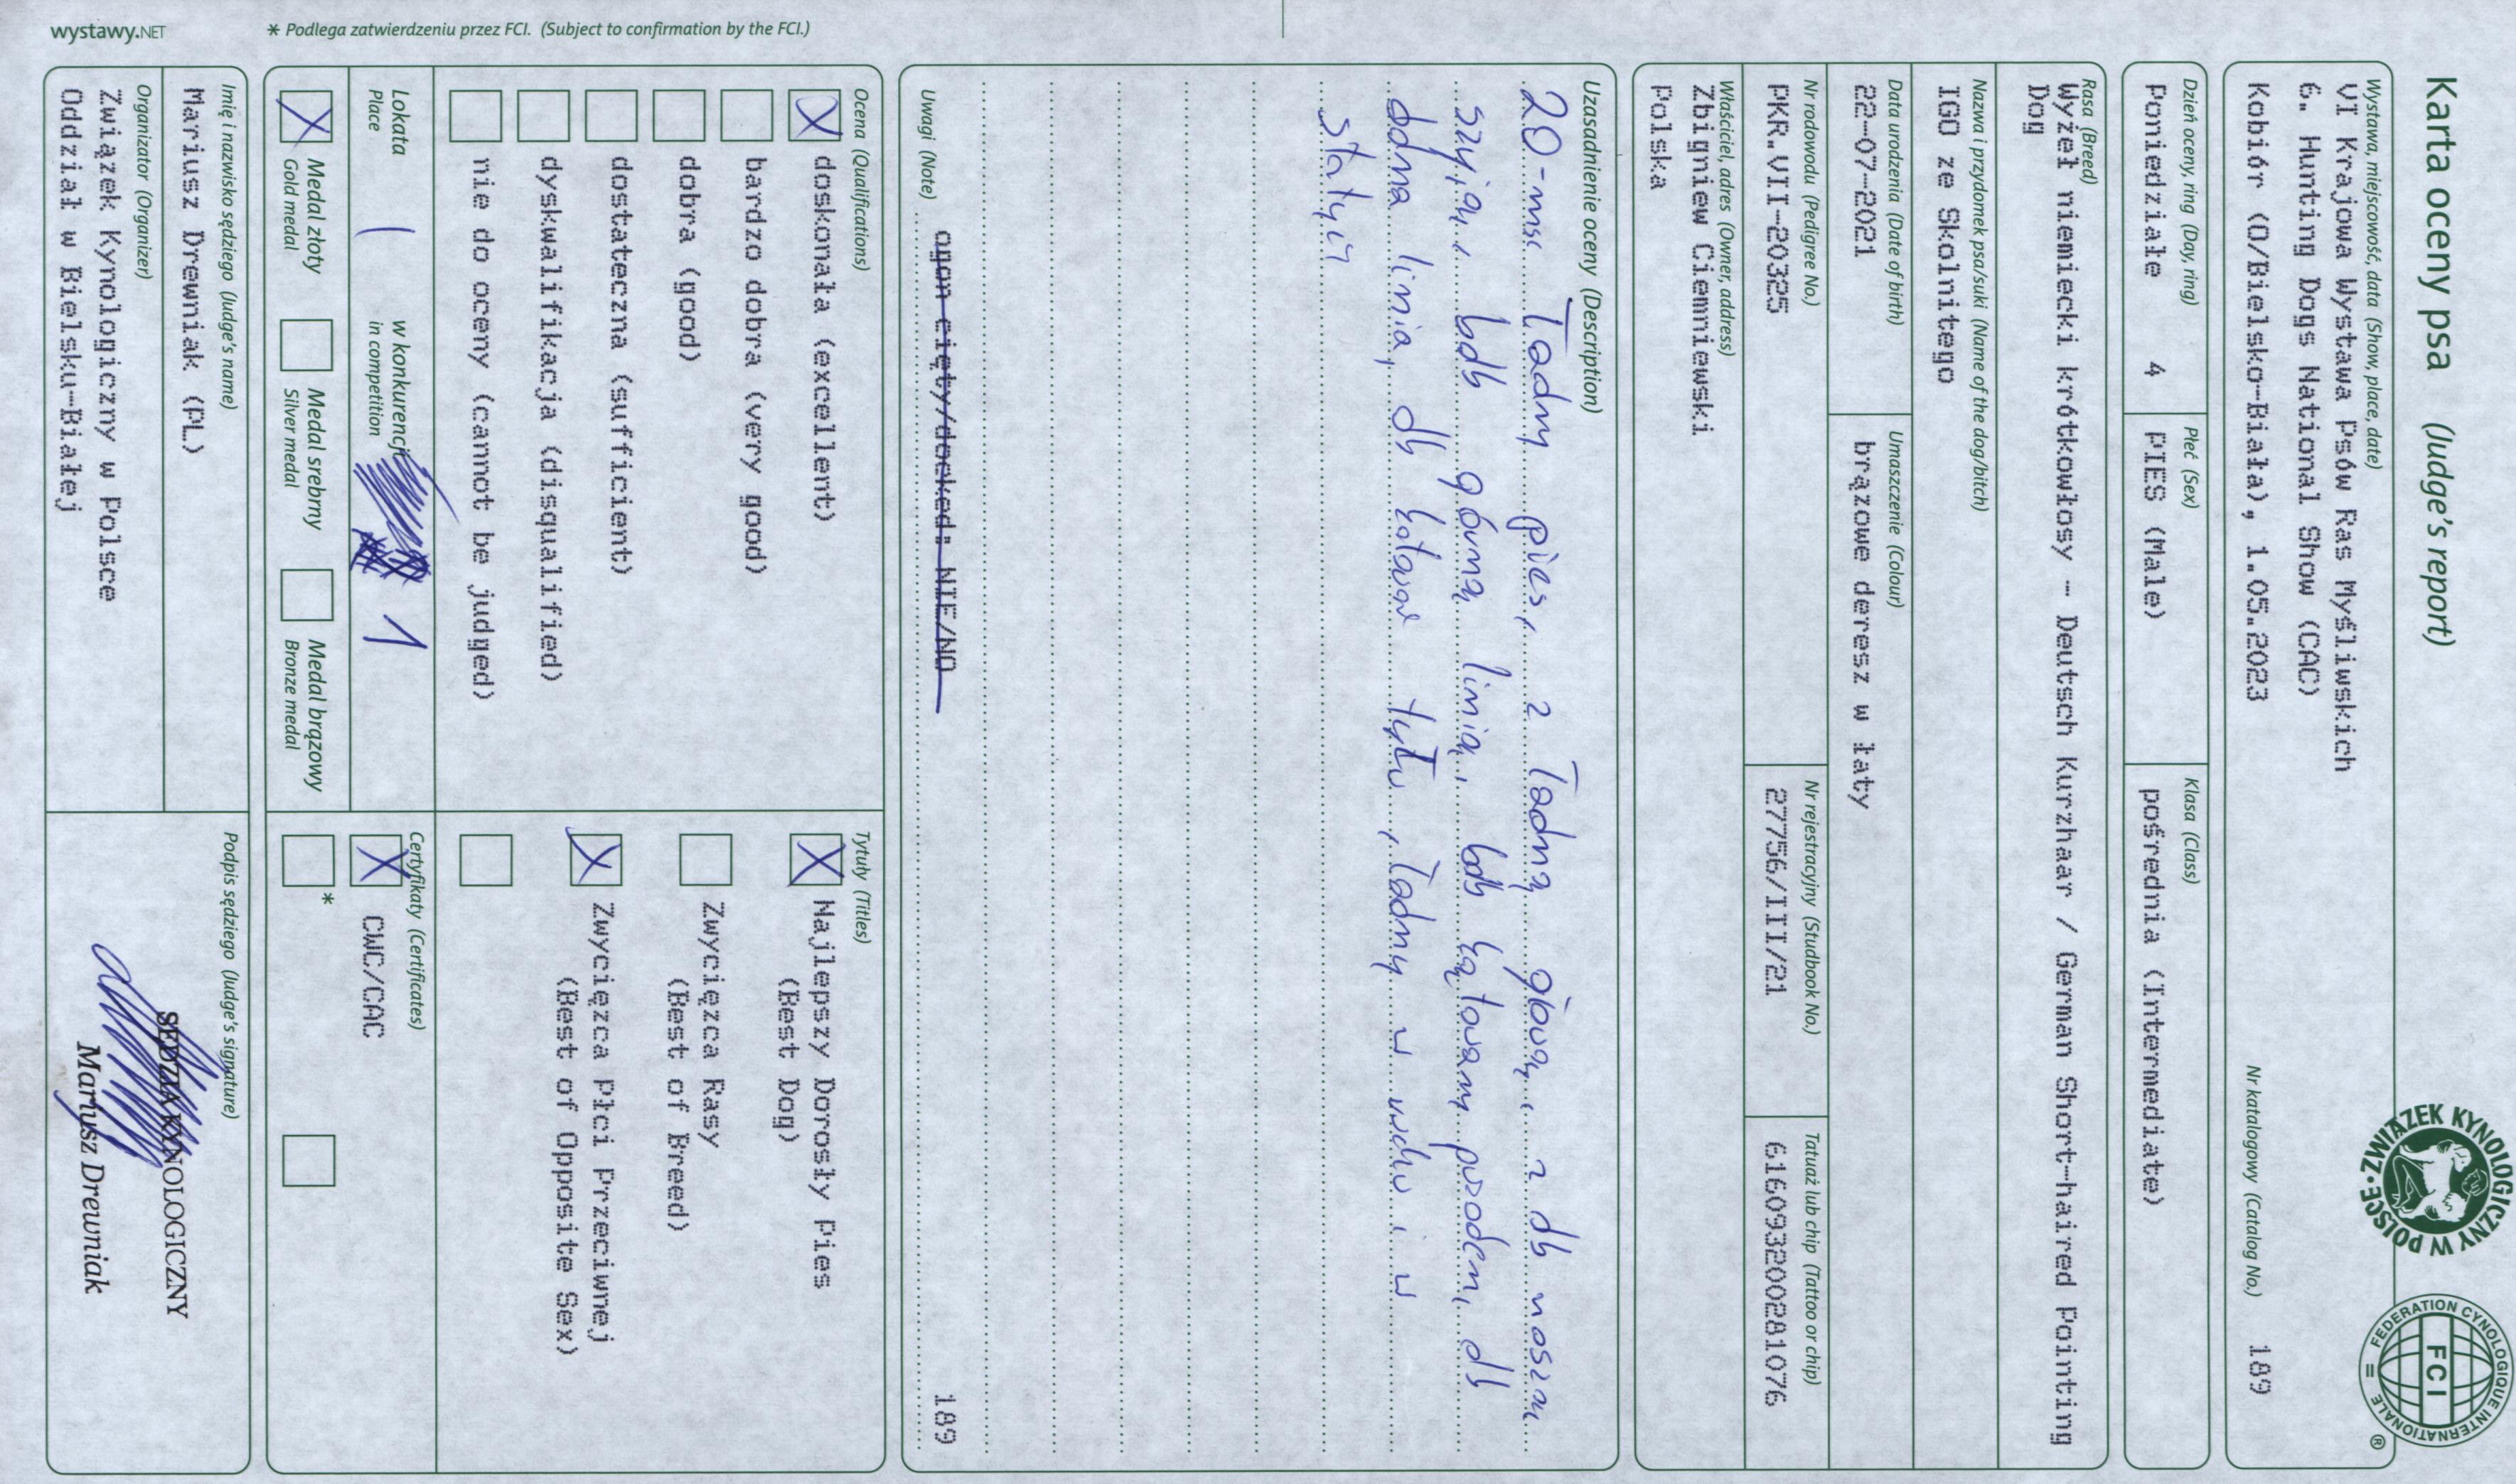 Karta oceny psa (Judge's report)
ZWIĄZEK KYNOLOGICZNY W POLSCE
FEDERATION CYNOLOGIQUE INTERNATIONALE
FCI
®
Wystawa, miejscowość, data (Show, place, date)
VI Krajowa Wystawa Psów Ras Myśliwskich
6. Hunting Dogs National Show (CAC)
Kobiór (O/Bielsko-Biała), 1.05.2023
Nr katalogowy (Catalog No.) 189
Dzień oceny, ring (Day, ring) Płeć (Sex) Klasa (Class)
Poniedziałe 4 PIES (Male) pośrednia (Intermediate)
Rasa (Breed)
Wyżeł niemiecki krótkowłosy - Deutsch Kurzhaar / German Short-haired Pointing
Dog
Nazwa i przydomek psa/suki (Name of the dog/bitch)
IGO ze Skolnitego
Data urodzenia (Date of birth) Umaszczenie (Colour)
22-07-2021 brązowe deresz w łaty
Nr rodowodu (Pedigree No.) Nr rejestracyjny (Studbook No.) Tatuaż lub chip (Tattoo or chip)
PKR.VII-20325 27756/III/21 616093200281076
Właściciel, adres (Owner, address)
Zbigniew Ciemniewski
Polska
Uzasadnienie oceny (Description)
20-msc ładny pies, z ładną głową, z db nosz.
szyją, bdb górną linią, bdb kątowany przodem, db
dolna linia, db kątowanie tyłu, ładny w ruchu i w
statyce
Uwagi (Note) ogon cięty/docked: NIE/NO 189
Ocena (Qualifications)
doskonała (excellent)
bardzo dobra (very good)
dobra (good)
dostateczna (sufficient)
dyskwalifikacja (disqualified)
nie do oceny (cannot be judged)
Tytuły (Titles)
Najlepszy Dorosły Pies
(Best Dog)
Zwycięzca Rasy
(Best of Breed)
Zwycięzca Płci Przeciwnej
(Best of Opposite Sex)
Lokata
Place
1
w konkurencji
in competition
1
Medal złoty
Gold medal
Medal srebrny
Silver medal
Medal brązowy
Bronze medal
Certyfikaty (Certificates)
CWC/CAC
*
Imię i nazwisko sędziego (Judge's name)
Mariusz Drewniak (PL)
Organizator (Organizer)
Związek Kynologiczny w Polsce
Oddział w Bielsku-Białej
Podpis sędziego (Judge's signature)
SĘDZIA KYNOLOGICZNY
Mariusz Drewniak
wystawy.NET
* Podlega zatwierdzeniu przez FCI. (Subject to confirmation by the FCI.)